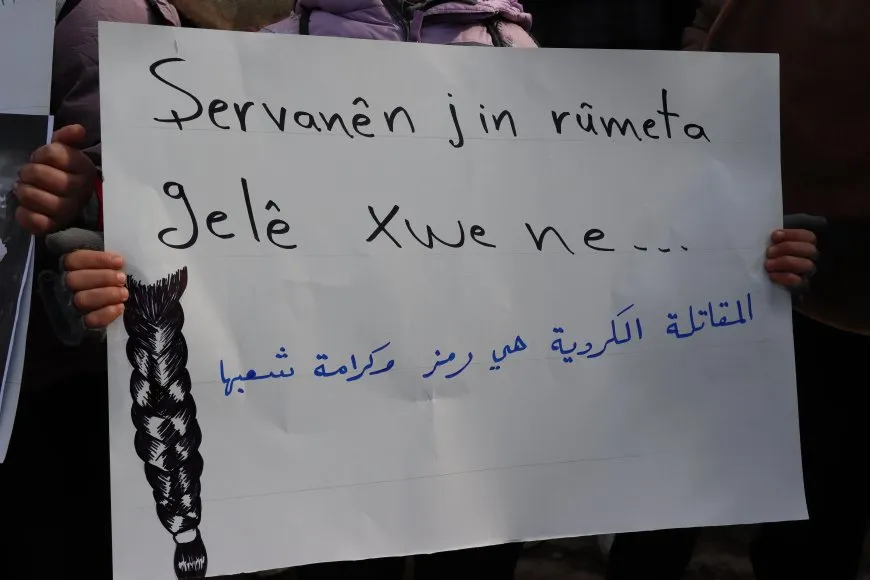 Şervanên jin rûmeta
gelê xwe ne...
المقاتلة الكروية هي رمز وكرامة شعبها